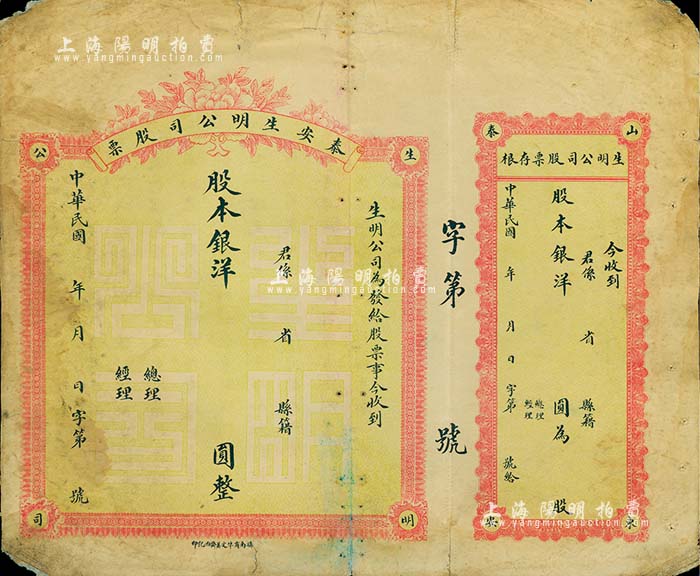 上海陽明拍賣
www.yangmingauction.com
上海陽明拍賣
www.yangmingauction.com
上海陽明拍賣
www.yangmingauction.com
山
東
泰
安
生明公司股票存根
今收到
君係 省 縣籍
股本銀洋 圓為 股
總理
經理
中華民國 年 月 日 字第 號給
字第 號
泰安生明公司股票
生
明
公
司
生明公司為發給股票事今收到
君係 省 縣籍
股本銀洋 圓整
總理
經理
中華民國 年 月 日 字第 號